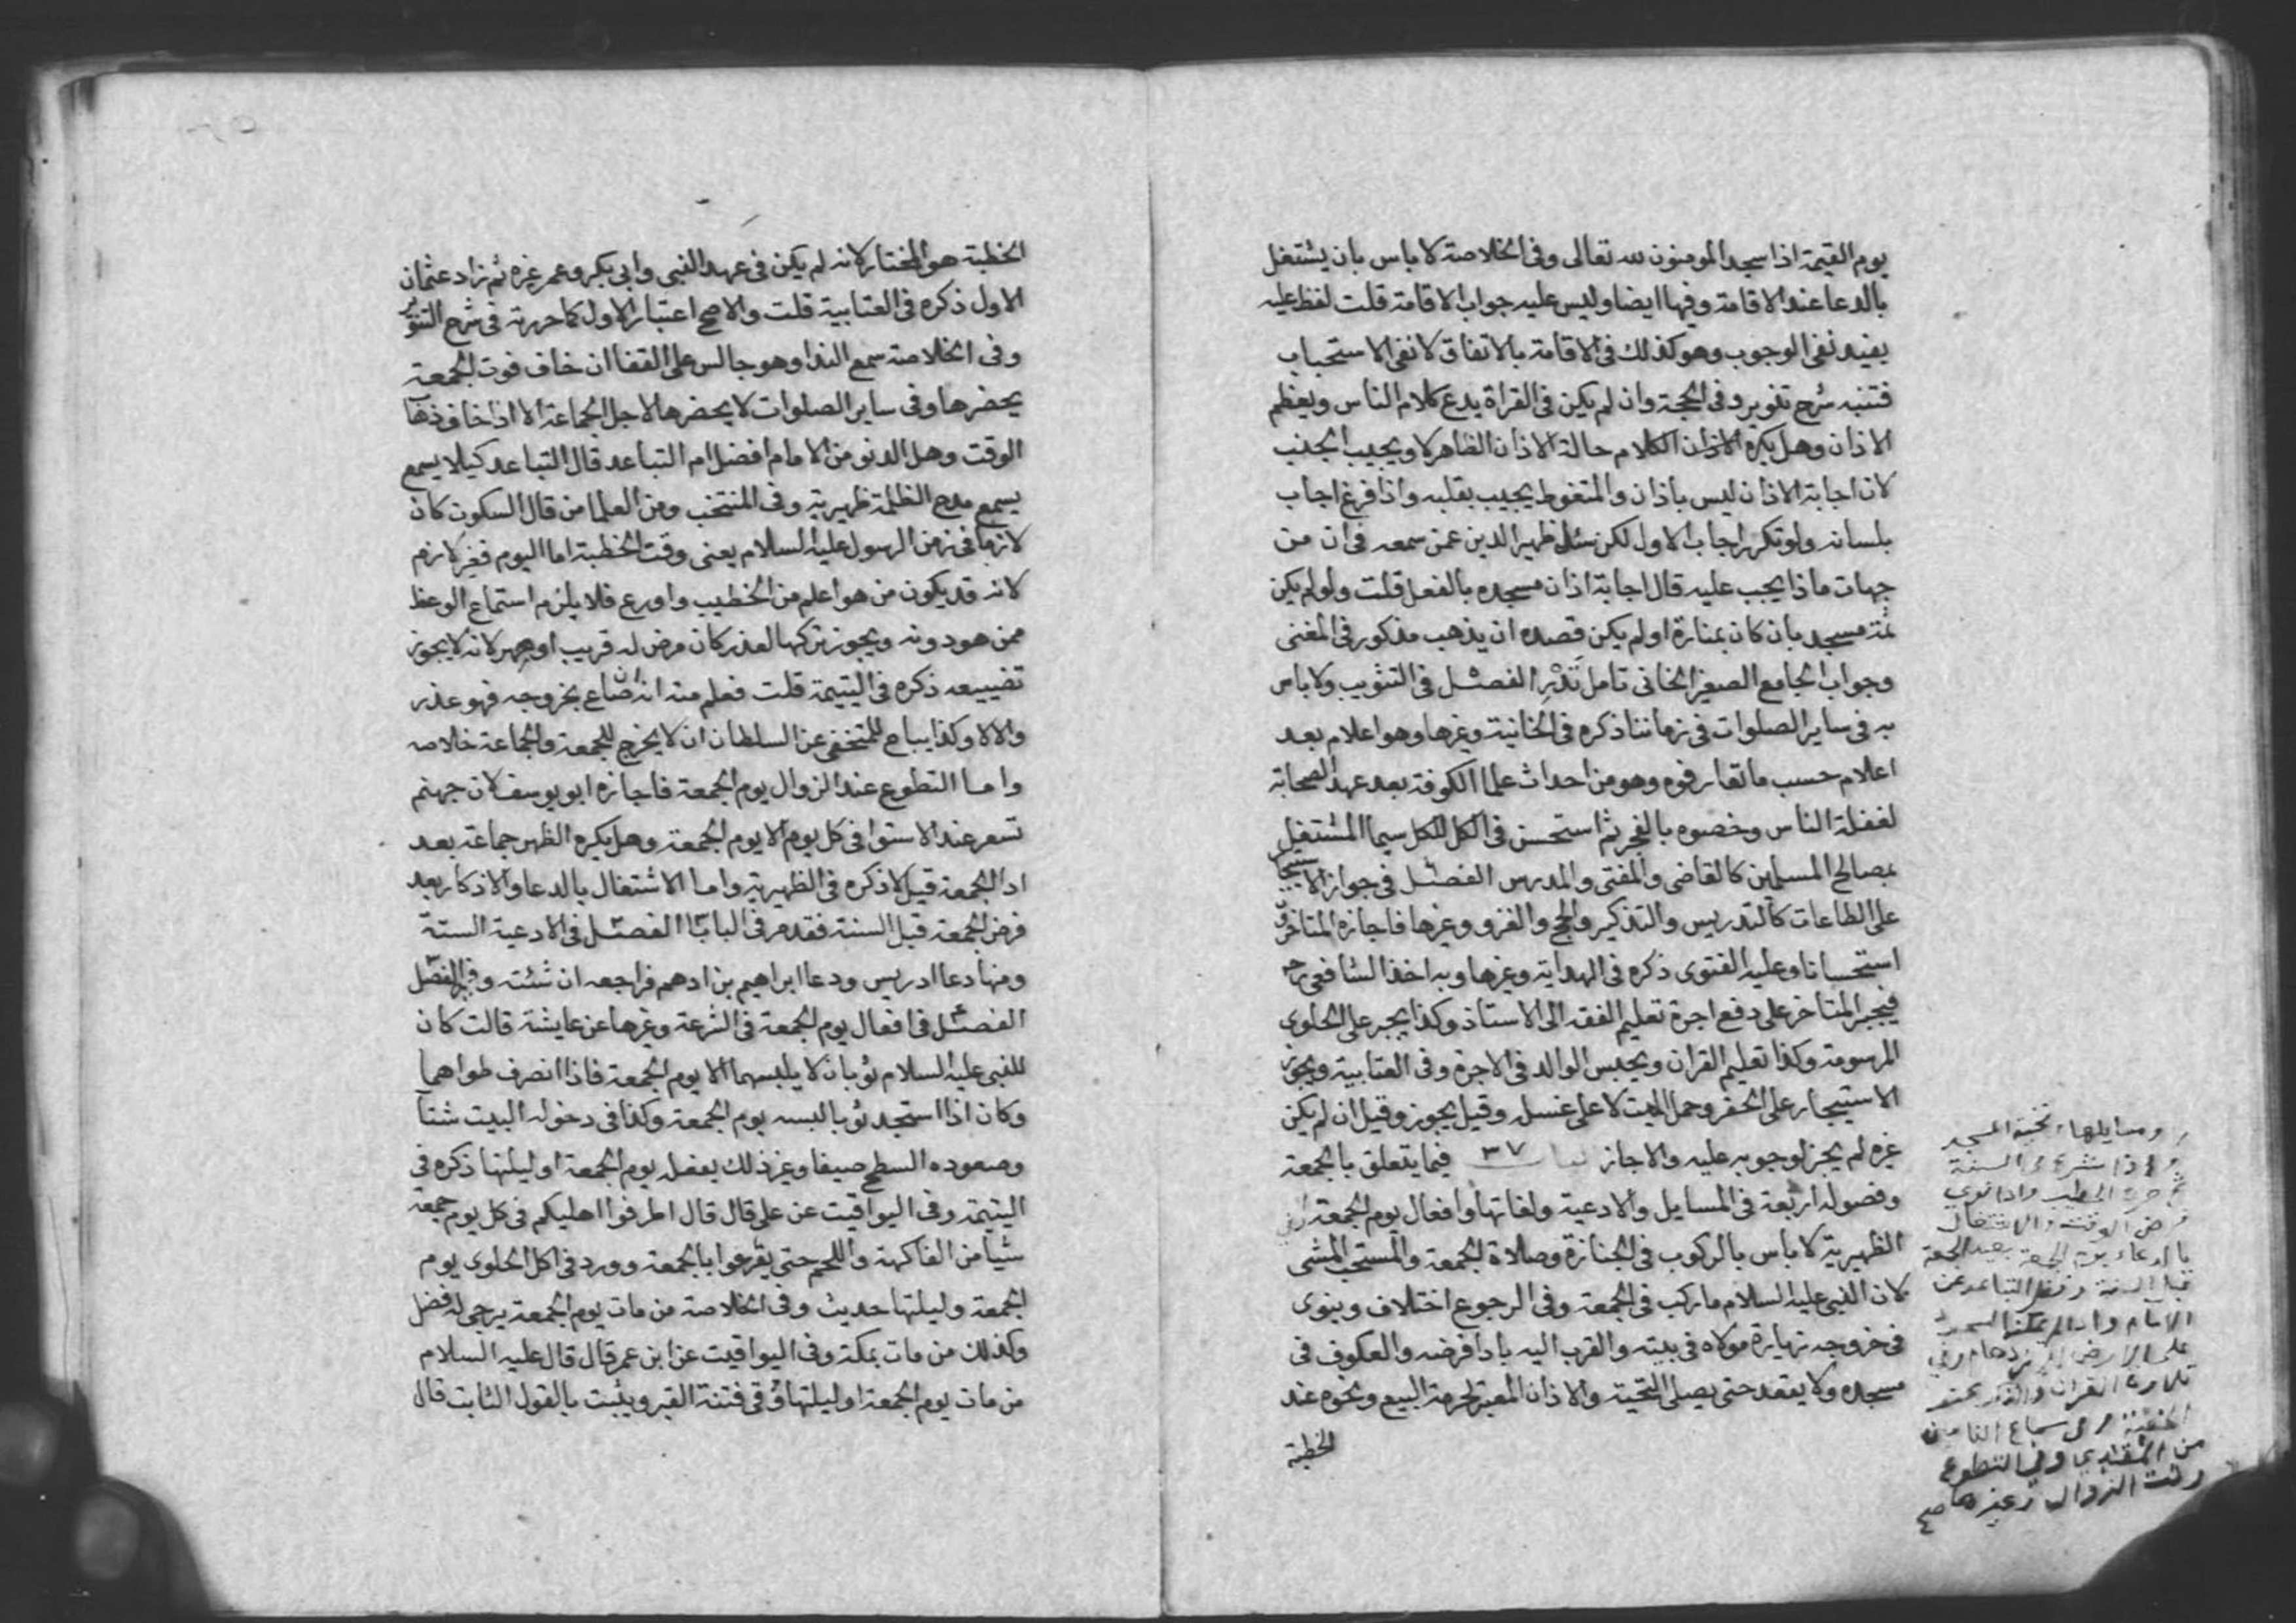 يوم القيمة اذا سجد المومنون لله تعالى وفى الخلاصة لا باس بان يشتغل
بالدعا عند الاقامة وفيها ايضا وليس عليه جواب الاقامة قلت لفظ عليه
يفيد نفى الوجوب وهو كذلك فى الاقامة بالاتفاق لا نفى الاستحباب
فتنبه شرح تنوير وفى الحجة وان لم يكن فى القراة يدع كلام الناس ويعظم
الاذان وهل يكره الكلام حالة الاذان الظاهر لا ويجيب الجنب
لان اجابة الاذان ليس باذان والمتغوط يجيب بقلبه واذا فرغ اجاب
بلسانه ولو تكرر اجاب الاول لكن سئل ظهير الدين عمن سمعه فى ان من
جهات ماذا يجب عليه قال اجابة اذان مسجده بالفعل قلت ولو لم يكن
ثمة مسجد بان كان بمنارة او لم يكن قصده ان يذهب مذكور فى المغنى
وجواب الجامع الصغير الخانى تامل تَدْرِ الفصل فى التثويب ولا باس
به فى ساير الصلوات فى زماننا ذكره فى الخانية وغيرها وهو اعلام بعد
اعلام حسب ما تعارفوه وهو من احداث علما الكوفة بعد عهد الصحابة
لغفلة الناس وخصوه بالفجر ثم استحسن فى الكل للكل سيما المشتغل
بمصالح المسلمين كالقاضى والمفتى والمدرس الفصل فى جواز الاستيجار
على الطاعات كالتدريس والتذكير والحج والغزو وغيرها فاجازه المتاخرون
استحسانا وعليه الفتوى ذكره فى الهداية وغيرها وبه اخذ الشافعى رحه
فيجبر المتاخر على دفع اجرة تعليم الفقه الى الاستاذ وكذا يجبر على الحلوى
المرسومة وكذا تعليم القران ويحبس الوالد فى الاجرة وفى العتابية ويجوز
الاستيجار على الحفر وحمل الميت لا على غسله وقيل يجوز وقيل ان لم يكن
غيره لم يجز لوجوبه عليه والا جاز باب ٣٧ فيما يتعلق بالجمعة
وفصوله اربعة فى المسايل والادعية ولغاتها وافعال يوم الجمعة فى
الظهيرية لا باس بالركوب فى الجنازة وصلاة الجمعة والمستحب المشى
لان النبى عليه السلام ما ركب فى الجمعة وفى الرجوع اختلاف وينوى
فى خروجه زيارة مولاه فى بيته والقرب اليه بادا فرضه والعكوف فى
مسجده ولا يقعد حتى يصلى التحية والاذان المعتبر لحرمة البيع ونحوه عند
الخطبة
ومسايلها تحية المسجد
واذا شرع فى السنة
ثم خرج الخطيب واذا نوى
فرض الوقت والاشتغال
بالدعاء يوم الجمعة بعيد الجمعة
قبل السنة وفضل التباعد عن
الامام واذا لم يمكنه السجود
على الارض للزحام وفى
تلاوة القران والذكر
سماع
من المقتدى وفى التطوع
وقت الزوال وغيرها صح
الخطبة هو المختار لانه لم يكن فى عهد النبى وابى بكر وعمر غيره ثم زاد عثمان
الاول ذكره فى العتابية قلت والاصح اعتبار الاول كما حررته فى شرح التنوير
وفى الخلاصة سمع الندا وهو جالس على القفا ان خاف فوت الجمعة
يحضرها وفى ساير الصلوات لا يحضرها لاجل الجماعة الا اذا خاف ذهاب
الوقت وهل الدنو من الامام افضل ام التباعد قال التباعد كيلا يسمع
يسمع مدح الظلمة ظهيرية وفى المنتخب ومن العلما من قال السكون كان
لازما فى زمن الرسول عليه السلام يعنى وقت الخطبة اما اليوم فغير لازم
لانه قد يكون من هو اعلم من الخطيب واورع فلا يلزم استماع الوعظ
ممن هو دونه ويجوز تركها لعذر كان مرض له قريب او صهر لانه لا يجوز
تضييعه ذكره فى اليتيمة قلت فعلم منه انه ان ضاع بخروجه فهو عذر
والا لا وكذا يباح للمتخفى عن السلطان ان لا يخرج للجمعة والجماعة خلاصه
واما التطوع عند الزوال يوم الجمعة فاجازه ابو يوسف لان جهنم
تسعر عند الاستوا فى كل يوم الا يوم الجمعة وهل يكره الظهر جماعة بعد
ادا الجمعة قيل لا ذكره فى الظهيرية واما الاشتغال بالدعا والاذكار بعد
فرض الجمعة قبل السنة فقد مر فى الباب الفصل فى الادعية الستة
ومنها دعا ادريس ودعا ابراهيم بن ادهم فراجعه ان شئت
الفصل فى افعال يوم الجمعة فى الشرعة وغيرها عن عايشة قالت كان
للنبى عليه السلام ثوبان لا يلبسهما الا يوم الجمعة فاذا انصرف طواهما
وكان اذا استجد ثوبا لبسه يوم الجمعة وكذا فى دخوله البيت شتآ
وصعوده السطح صيفا وغير ذلك يفعله يوم الجمعة او ليلتها ذكره فى
اليتيمة وفى اليواقيت عن على قال قال اطرفوا اهليكم فى كل يوم جمعة
شيا من الفاكهة واللحم حتى يفرحوا بالجمعة وورد فى اكل الحلوى يوم
الجمعة وليلتها حديث وفى الخلاصة من مات يوم الجمعة يرجى له فضل
وكذلك من مات بمكة وفى اليواقيت عن ابن عمر قال قال عليه السلام
من مات يوم الجمعة او ليلتها وُقى فتنة القبر ويثبت بالقول الثابت قال